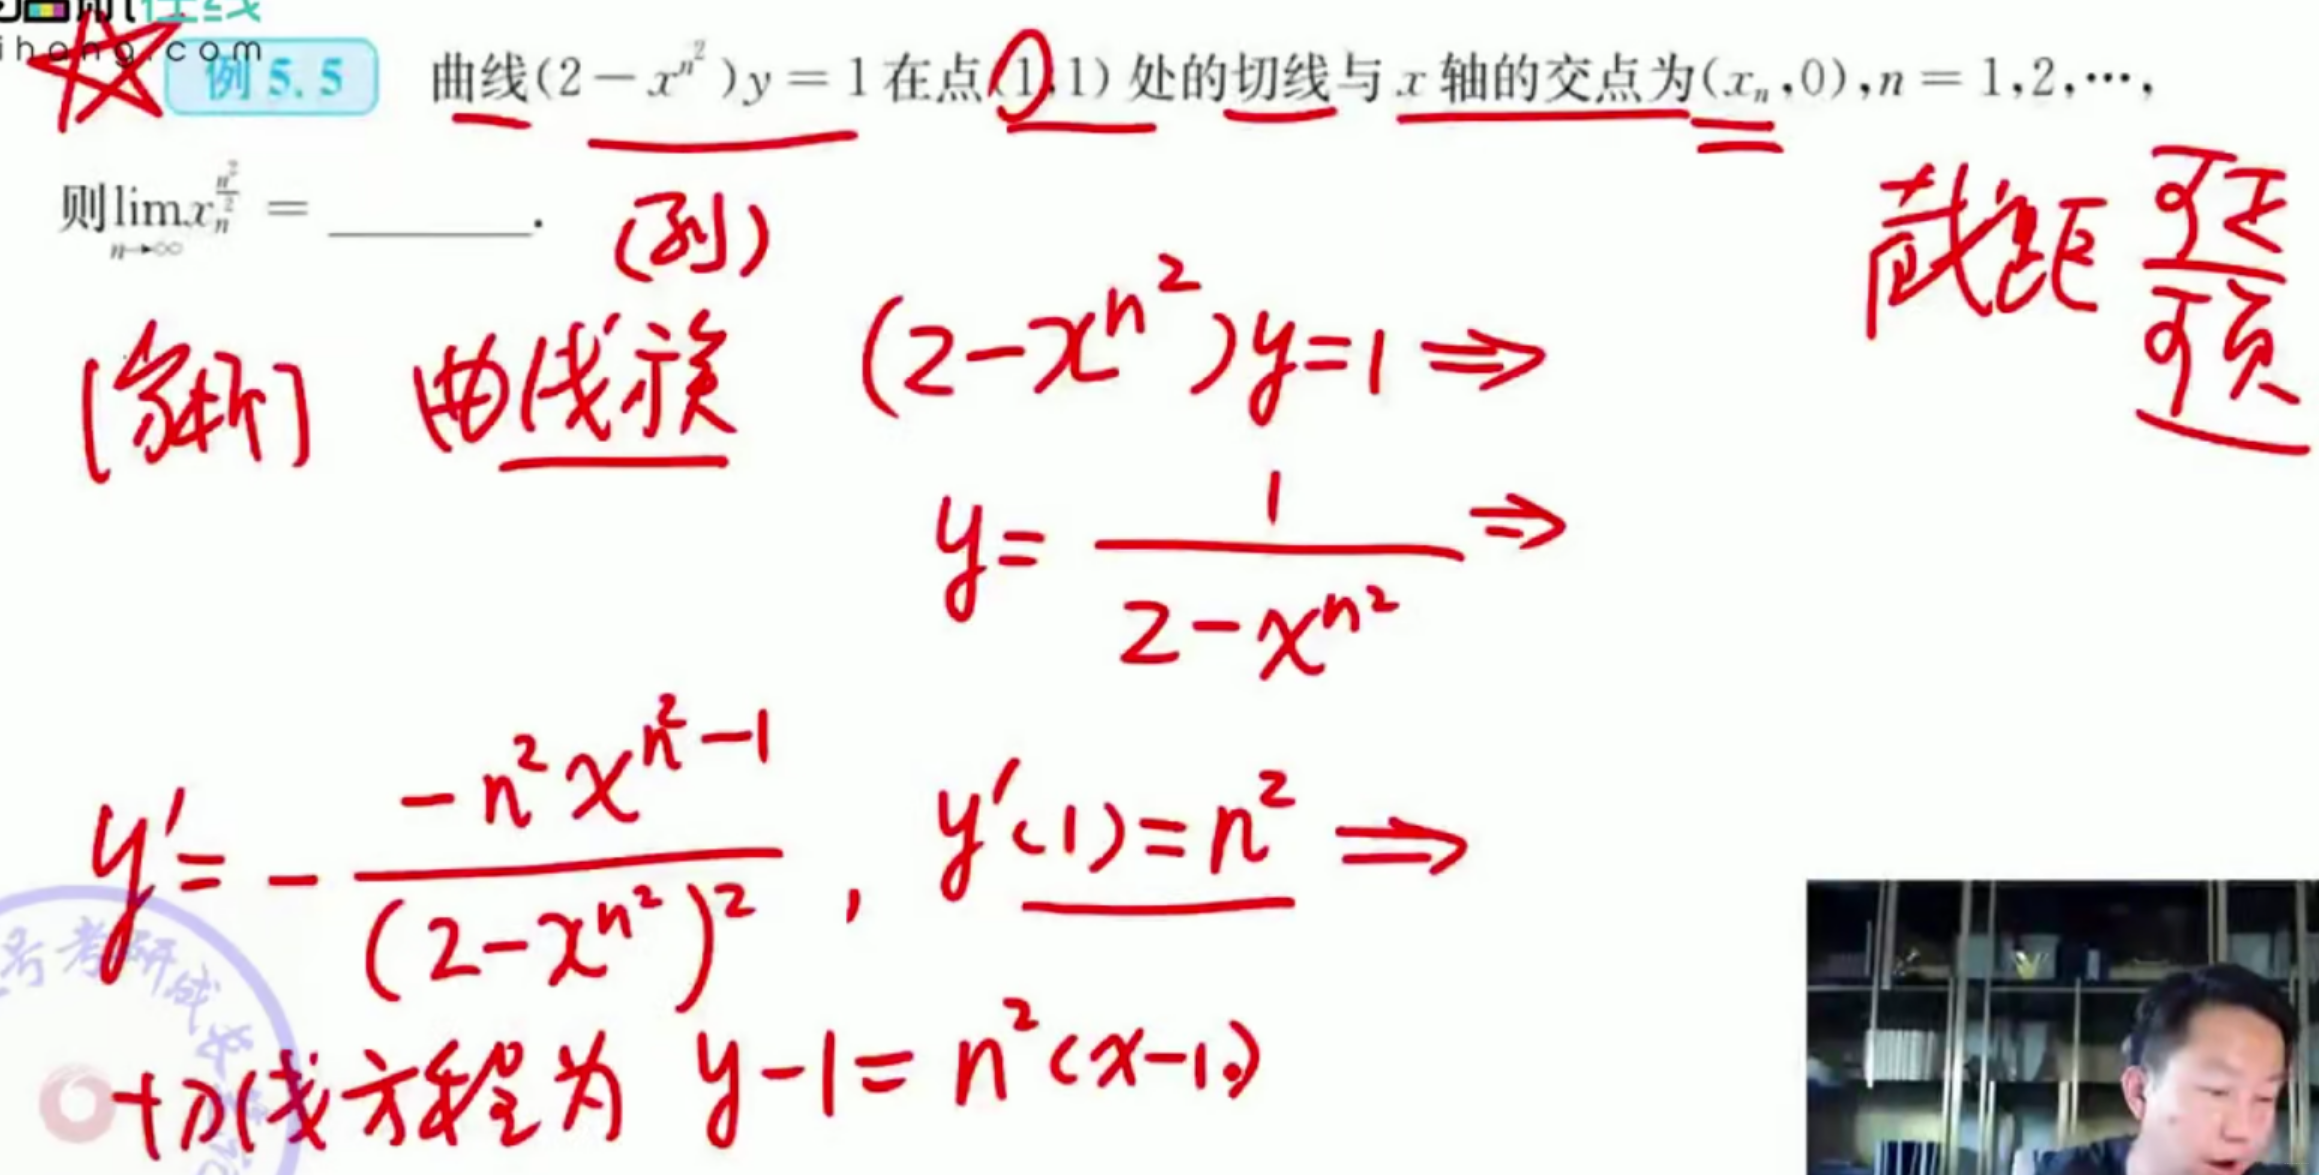 ihang.com
例5.5 曲线(2-x^{n^2})y=1在点(1,1)处的切线与x轴的交点为(x_n,0),n=1,2,…,
则lim_{n→∞}x_n^{\frac{n^2}{2}}=______.
(列)
截距 可正
可负
[解析] 曲线族 (2-x^{n^2})y=1⇒
y=\frac{1}{2-x^{n^2}}⇒
y'=-\frac{-n^2x^{n^2-1}}{(2-x^{n^2})^2}, y'(1)=n^2⇒
切线方程为 y-1=n^2(x-1)